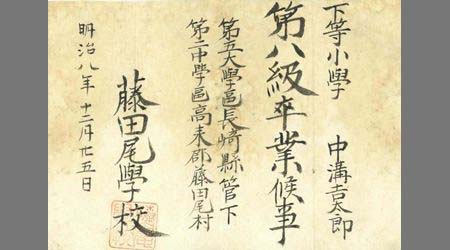 下等小學 中溝吉太郎
第八級卒業候事
第五大學區長崎縣管下
第二中學區高来郡藤田尾村
藤田尾學校
明治八年十二月廿五日